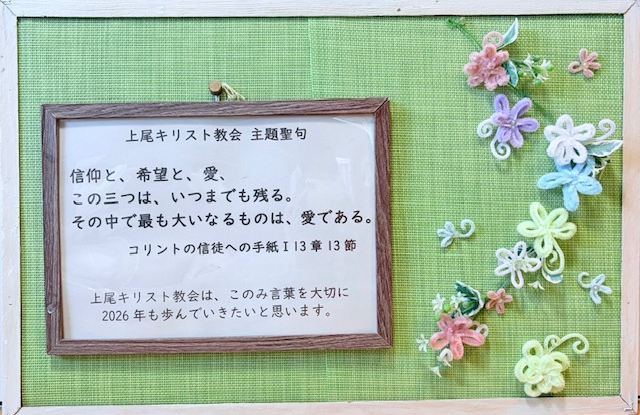 上尾キリスト教会 主題聖句
信仰と、希望と、愛、
この三つは、いつまでも残る。
その中で最も大いなるものは、愛である。
コリントの信徒への手紙Ⅰ 13章 13節
上尾キリスト教会は、このみ言葉を大切に
2026年も歩んでいきたいと思います。